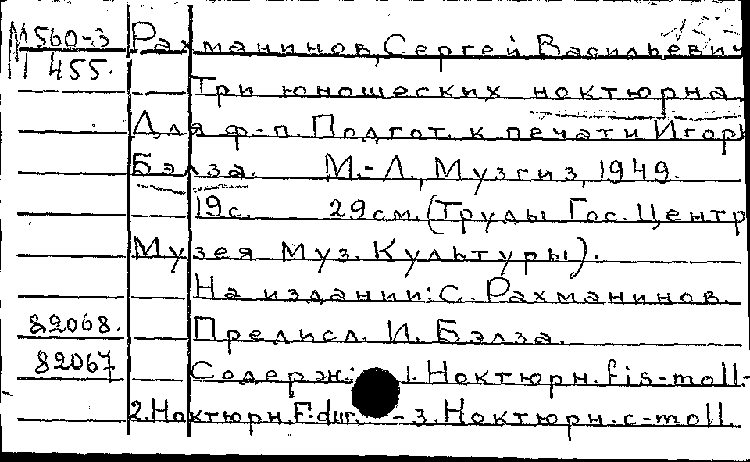 М560-3 Рахманинов, Сергей Васильевич
455.
Три юношеских ноктюрна
Для ф-п. Подгот. к печати Игорь
Бэлза. М.-Л., Музгиз, 1949.
19с. 29см. (Труды Гос. Центр
Музея Муз. Культуры).
На издании: С. Рахманинов.
82068. Предисл. И. Бэлза.
82067 Содерж: 1. Ноктюрн. fis-moll.-
2. Ноктюрн. F-dur. - 3. Ноктюрн. c-moll.